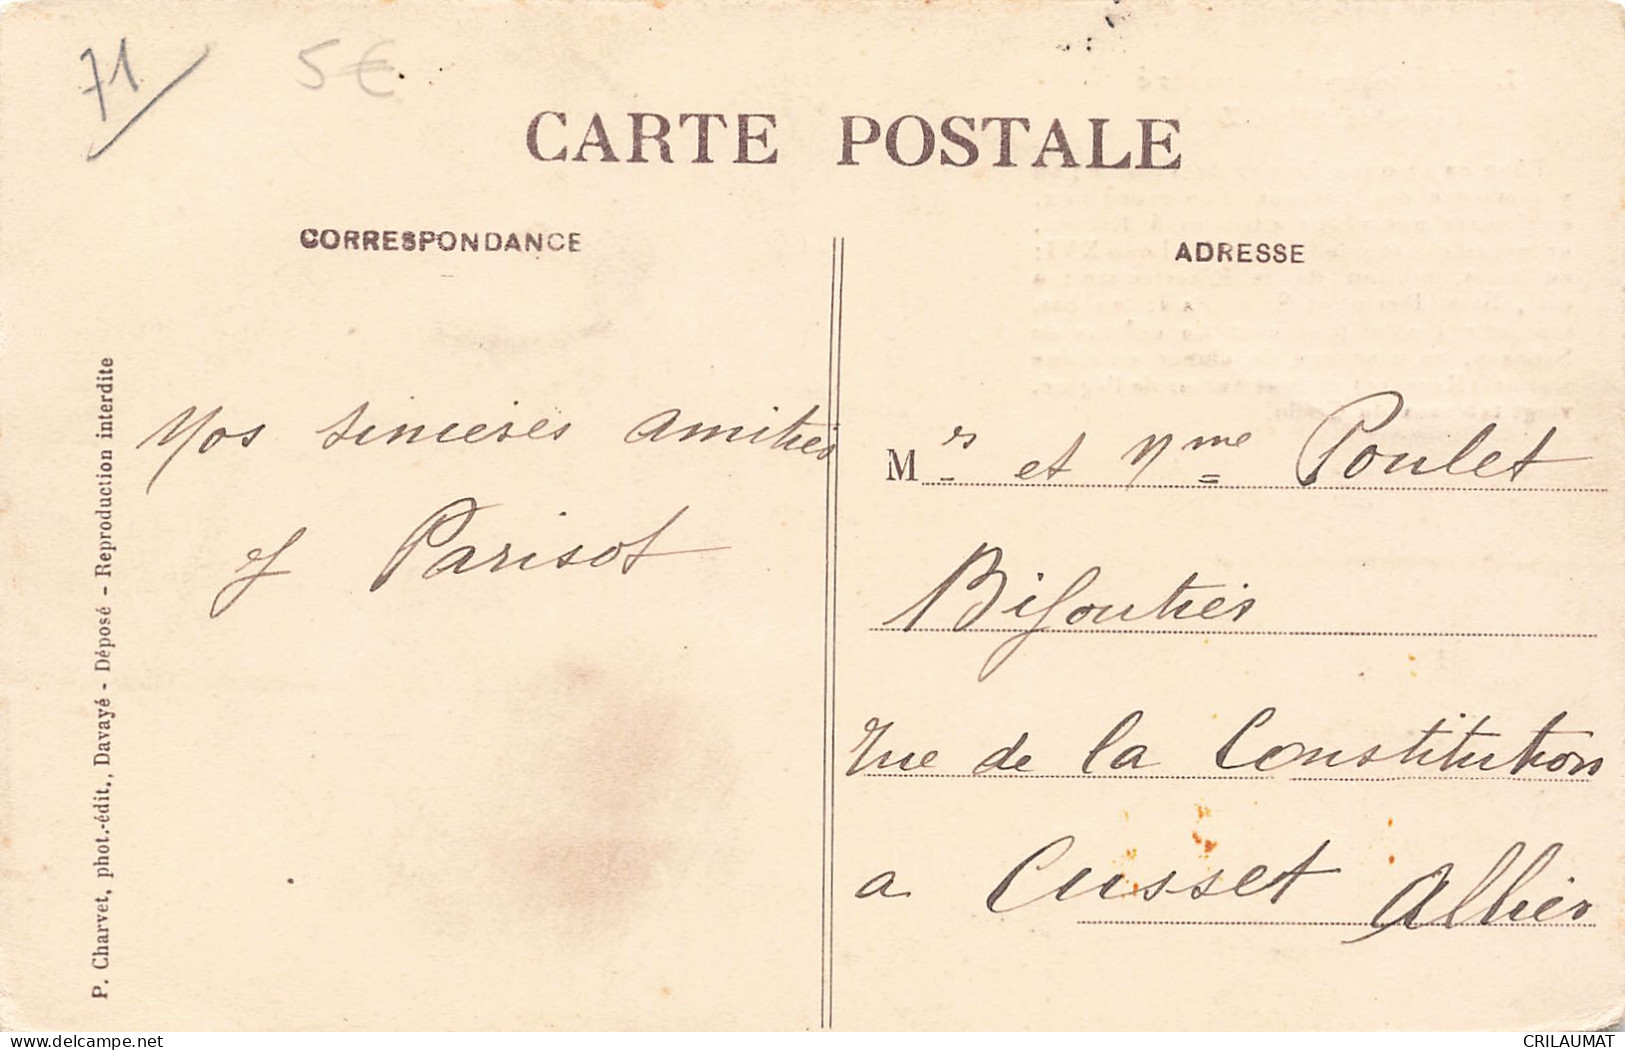 71
5€
CARTE POSTALE
CORRESPONDANCE
ADRESSE
Nos sincères amitiés
J Parisot
Mrs et Mme Poulet
Bijoutier
rue de la Constitution
a Cusset Allier
P. Charvet, phot.-édit., Davayé - Déposé - Reproduction interdite
www.delcampe.net
CRILAUMAT